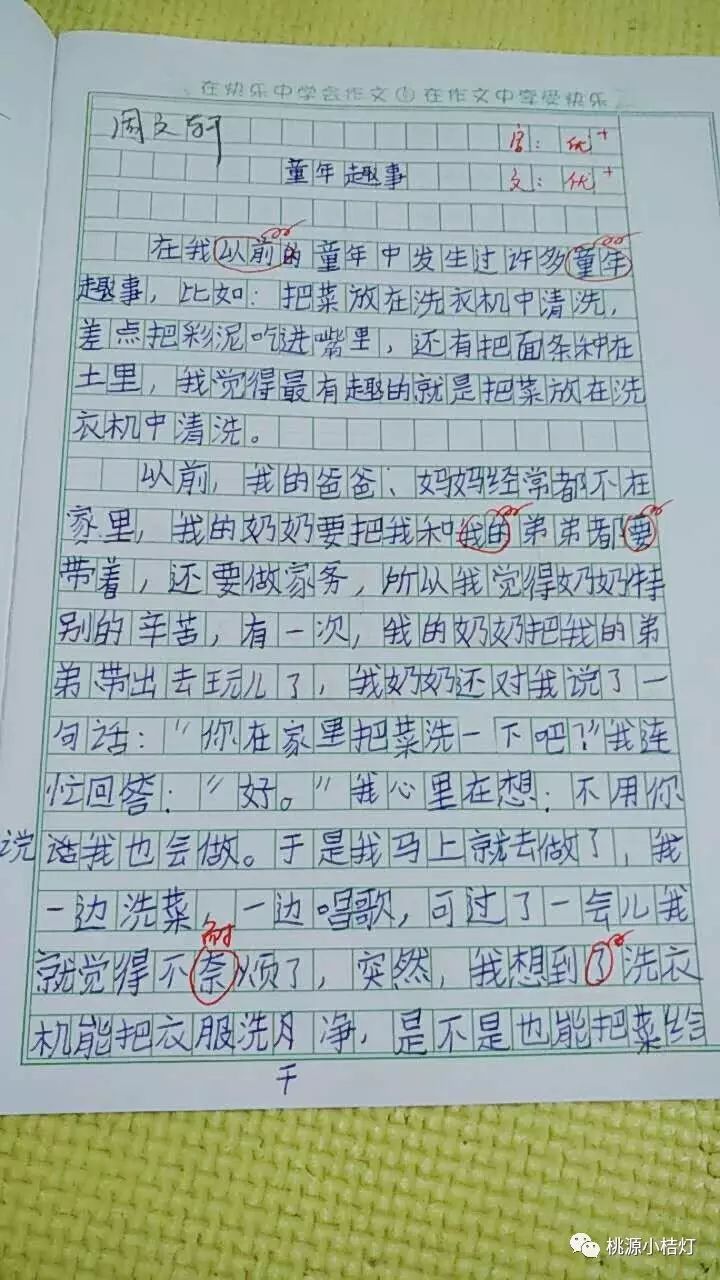 在快乐中学会作文①在作文中享受快乐
周文轩
官：优+
童年趣事
文：优+
在我以前的童年中发生过许多童年
趣事，比如：把菜放在洗衣机中清洗，
差点把彩泥吃进嘴里，还有把面条种在
土里，我觉得最有趣的就是把菜放在洗
衣机中清洗。
以前，我的爸爸、妈妈经常都不在
家里，我的奶奶要把我和我的弟弟都要
带着，还要做家务，所以我觉得奶奶特
别的辛苦，有一次，我的奶奶把我的弟
弟带出去玩儿了，我奶奶还对我说了一
句话：“你在家里把菜洗一下吧？”我连
忙回答：“好。”我心里在想：不用你
说话我也会做。于是我马上就去做了，我
一边洗菜，一边唱歌，可过了一会儿我
耐
就觉得不奈烦了，突然，我想到了洗衣
机能把衣服洗净，是不是也能把菜给
干
桃源小桔灯